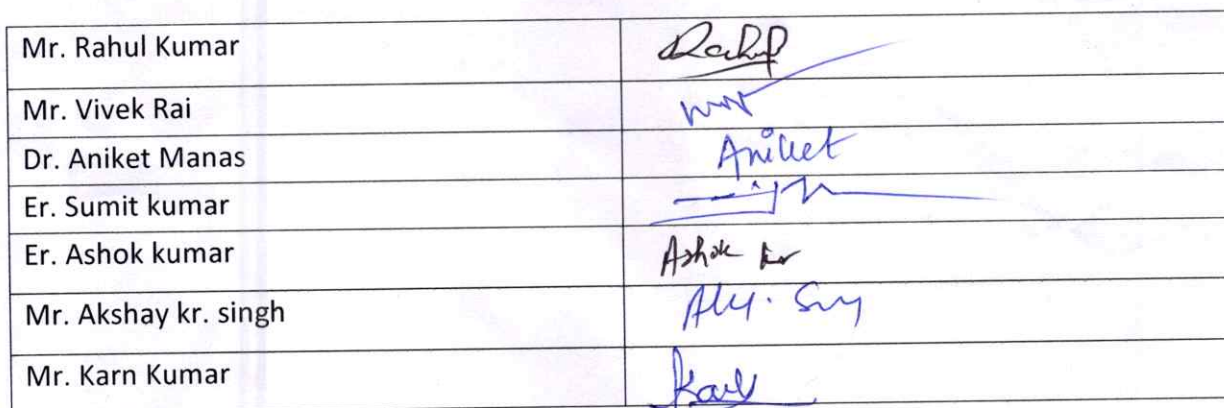 Mr. Rahul Kumar Rahul
Mr. Vivek Rai
Dr. Aniket Manas Aniket
Er. Sumit kumar
Er. Ashok kumar Ashok kr
Mr. Akshay kr. singh
Mr. Karn Kumar